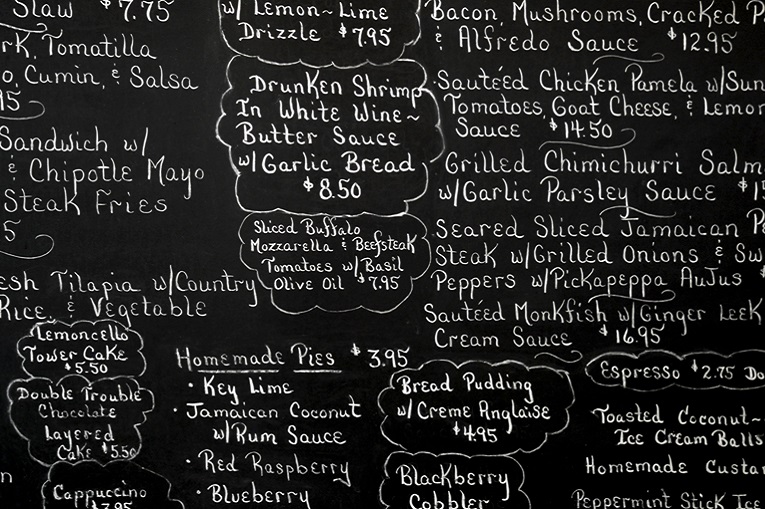 Slaw $7.75
rk, Tomatilla
o, Cumin, & Salsa
95
Sandwich w/
& Chipotle Mayo
Steak Fries
5
esh Tilapia w/Country
Rice, & Vegetable
Lemoncello
Tower Cake
$5.50
Double Trouble
Chocolate
Layered
Cake $5.50
Cappuccino
$3.95
n
w/ Lemon~Lime
Drizzle $7.95
Drunken Shrimp
In White Wine~
Butter Sauce
w/Garlic Bread
$8.50
Sliced Buffalo
Mozzarella & Beefsteak
Tomatoes w/Basil
Olive Oil $7.95
Homemade Pies $3.95
• Key Lime
• Jamaican Coconut
w/Rum Sauce
• Red Raspberry
• Blueberry
Bread Pudding
w/Creme Anglaise
$4.95
Blackberry
Cobbler
Bacon, Mushrooms, Cracked P
& Alfredo Sauce $12.95
Sautéed Chicken Pamela w/Sun
Tomatoes, Goat Cheese, & Lemon
Sauce $14.50
Grilled Chimichurri Salm
w/Garlic Parsley Sauce $15
Seared Sliced Jamaican P
Steak w/Grilled Onions & Sw
Peppers w/Pickapeppa AuJus $
Sautéed Monkfish w/Ginger Leek
Cream Sauce $16.95
Espresso $2.75 Do
Toasted Coconut~
Ice Cream Balls
Homemade Custa
Peppermint Stick Ice